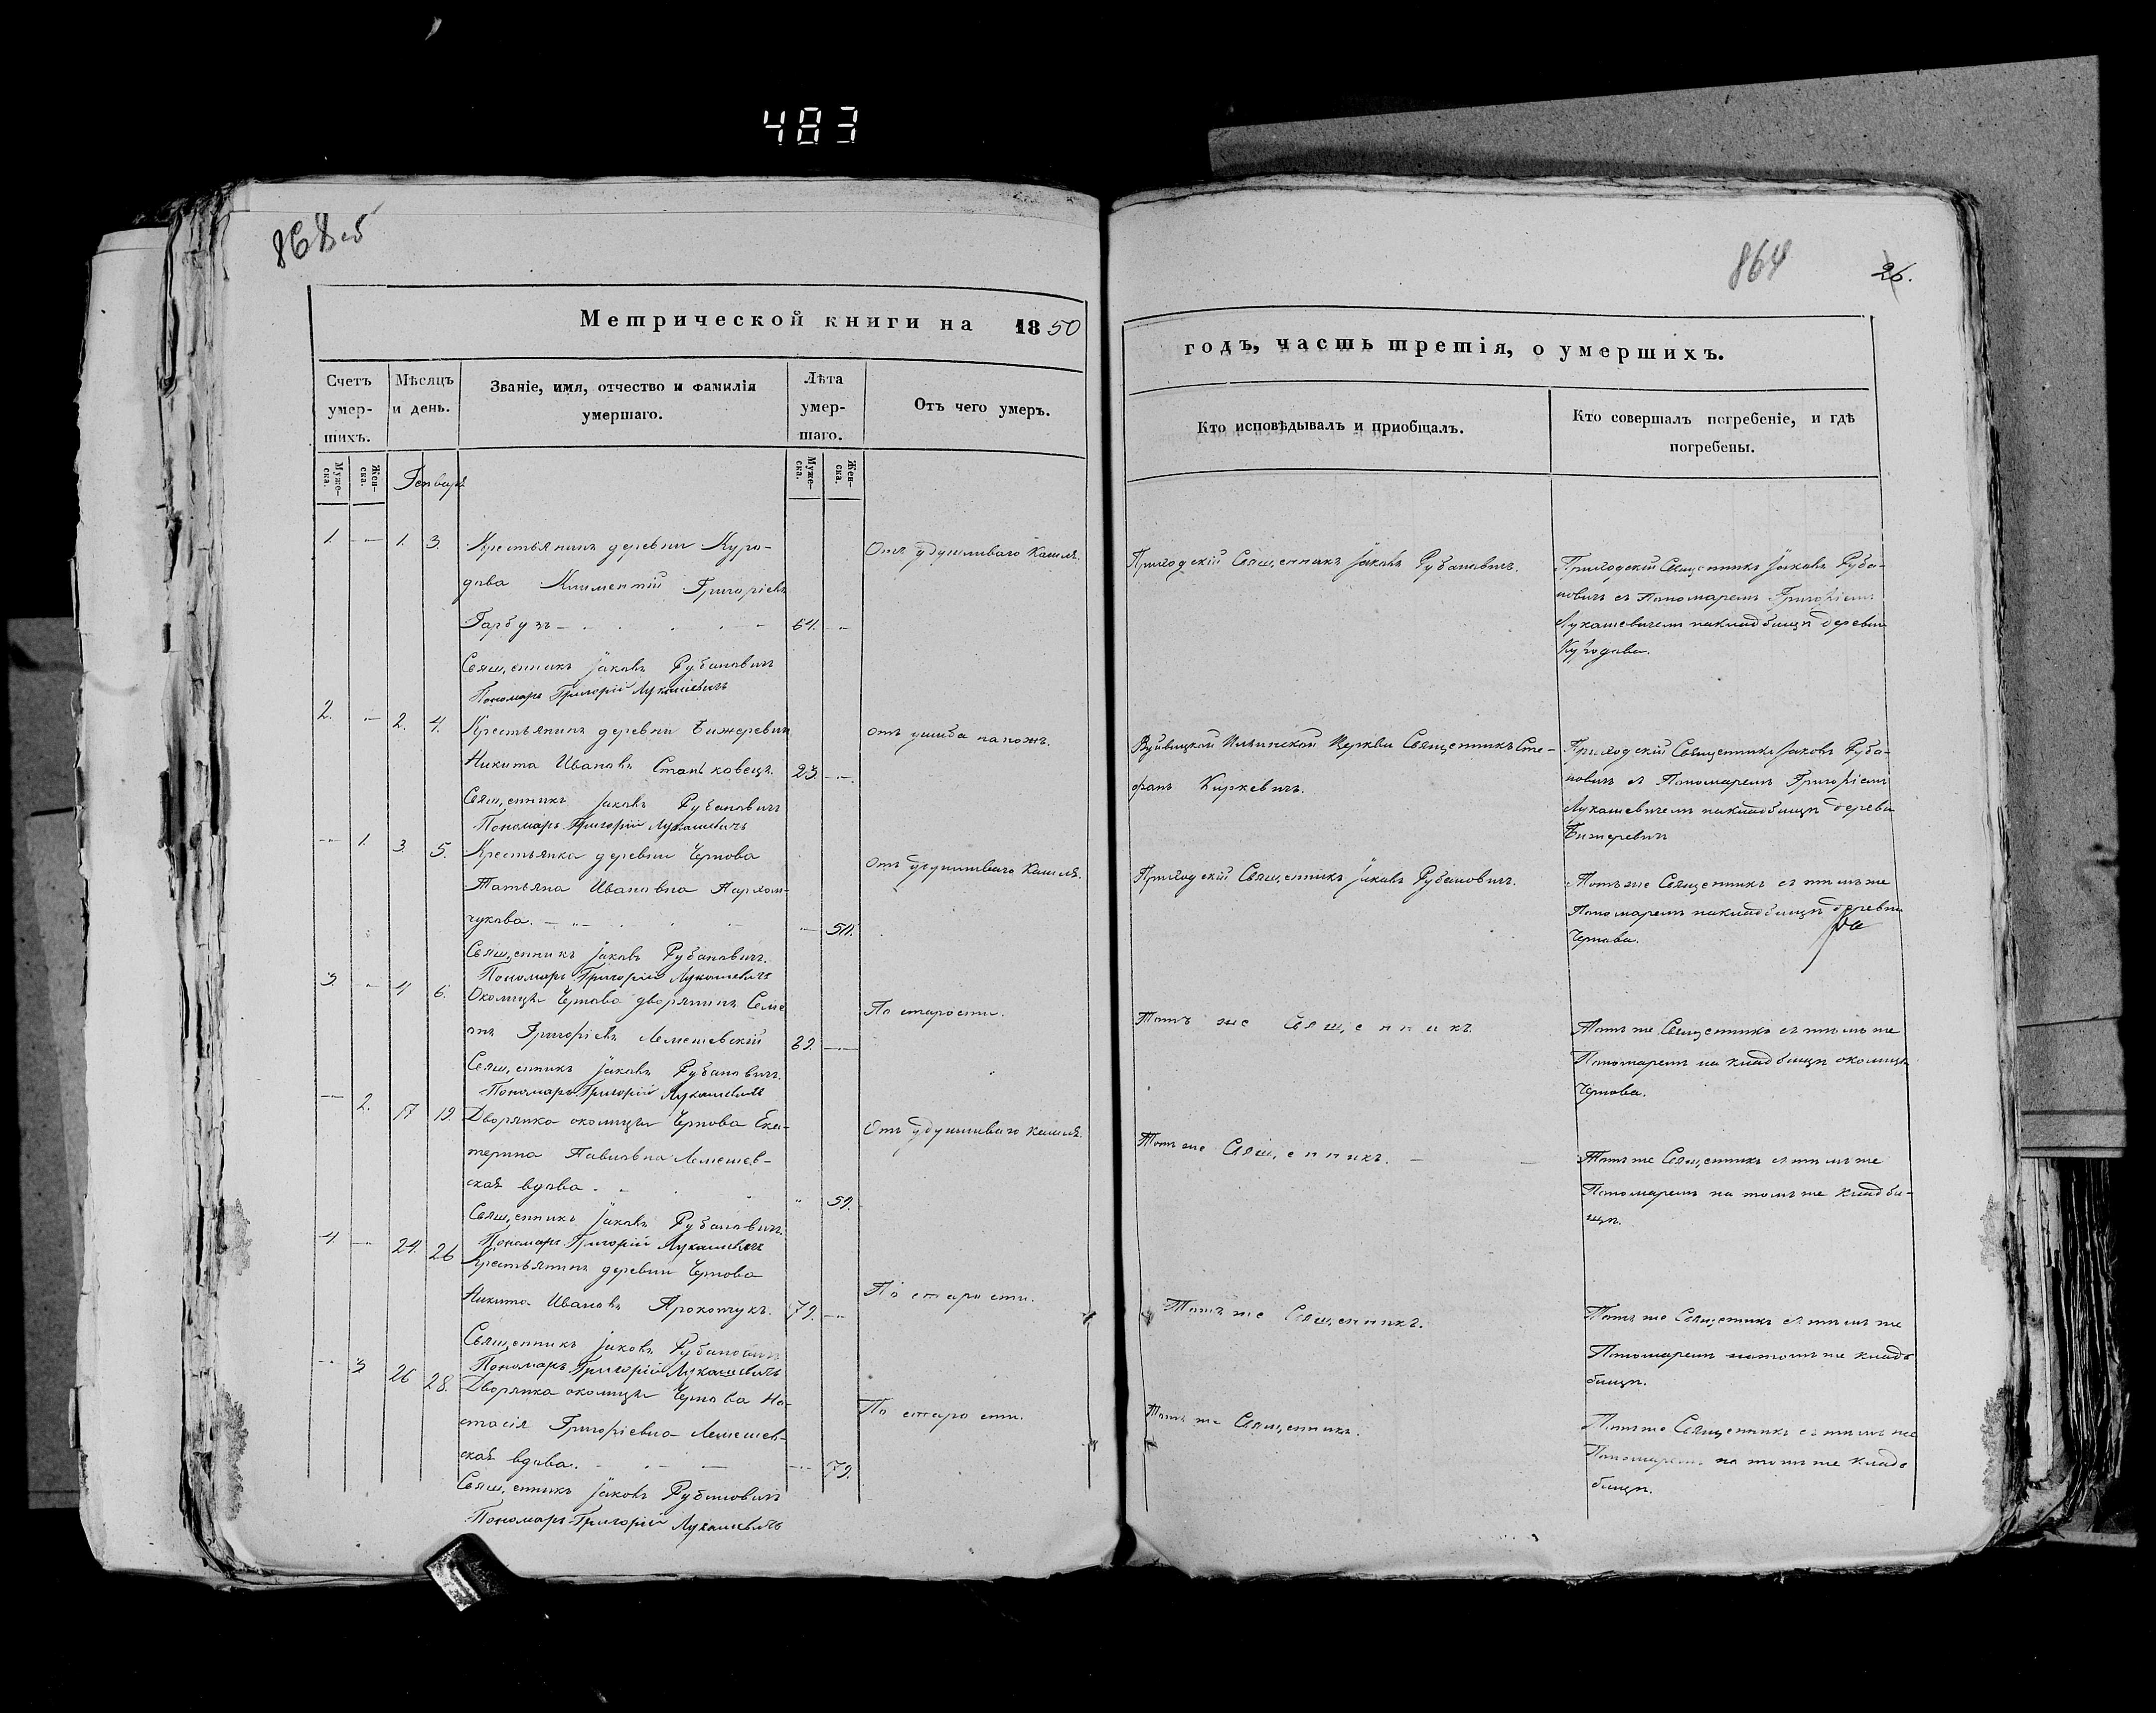 483
864
26.
Метрической книги на 1850
годъ, часть третія, о умершихъ.
Счетъ умер-
шихъ.
Мѣсяцъ
и день.
Званіе, имя, отчество и фамилія
умершаго.
Лѣта
умер-
шаго.
Отъ чего умеръ.
Кто исповѣдывалъ и приобщалъ.
Кто совершалъ погребеніе, и гдѣ
погребены.
Муже-
ска.
Жен-
ска.
Муже-
ска.
Жен-
ска.
1. — 1. 3. Крестьянинъ деревни Куро-
дова Климентій Григоріевъ
Гарбузъ
Священникъ Іаковъ Рубановичъ
Пономарь Григорій Лукашевичъ
Отъ удушливаго кашля.
Приходскій Священникъ Іаковъ Рубановичъ.
Приходскій Священникъ Іаковъ Руба-
новичъ съ Пономаремъ Григоріемъ
Лукашевичемъ на кладбищѣ деревни
Куродова.
2. — 2. 4. Крестьянинъ деревни Бижеревичъ
Никита Ивановъ Станковецъ. 23. —
Священникъ Іаковъ Рубановичъ
Пономарь Григорій Лукашевичъ
Отъ ушиба
Ильинской Церкви Священникъ Сте-
фанъ Киркевичъ.
Приходскій Священникъ Іаковъ Руба-
новичъ съ Пономаремъ Григоріемъ
Лукашевичемъ на кладбищѣ деревни
Бижеревичъ
— 1. 3. 5. Крестьянка деревни Чернова
Татьяна Ивановна Пархом-
чукова.
Священникъ Іаковъ Рубановичъ.
Пономарь Григорій Лукашевичъ
Отъ удушливаго кашля.
Приходскій Священникъ Іаковъ Рубановичъ.
Тотъ же Священникъ съ тѣмъ же
Пономаремъ на кладбищѣ деревни
Чернова.
3. — 4 6. Околицы Чернова дворянинъ Семе
онъ Григоріевъ Лемешевскій
Священникъ Іаковъ Рубановичъ.
Пономарь Григорій Лукашевичъ
По старости.
Тотъ же Священникъ
Тотъ же Священникъ съ тѣмъ же
Пономаремъ на кладбищѣ околицы
Чернова.
— 2. 17 19. Дворянка околицы Чернова Ека-
терина Павловна Лемешев-
ская вдова. 59.
Священникъ Іаковъ Рубановичъ.
Пономарь Григорій Лукашевичъ
Отъ удушливаго кашля.
Тотъ же Священникъ.
Тотъ же Священникъ съ тѣмъ же
Пономаремъ на томъ же кладби-
щѣ.
4. — 24. 26 Крестьянинъ деревни Чернова
Никита Ивановъ 79. —
Священникъ Іаковъ Рубановичъ
Пономарь Григорій Лукашевичъ
По старости.
Тотъ же Священникъ.
Тотъ же Священникъ съ тѣмъ же
Пономаремъ на томъ же кладъ
бищѣ.
— 3 26 28. Дворянка околицы Чернова На-
стасія Григоріевна Лемешев-
ская вдова. — 79.
Священникъ Іаковъ Рубановичъ
Пономарь Григорій Лукашевичъ
По старости.
Тотъ же Священникъ.
Тотъ же Священникъ съ тѣмъ же
Пономаремъ на томъ же кладъ
бищѣ.